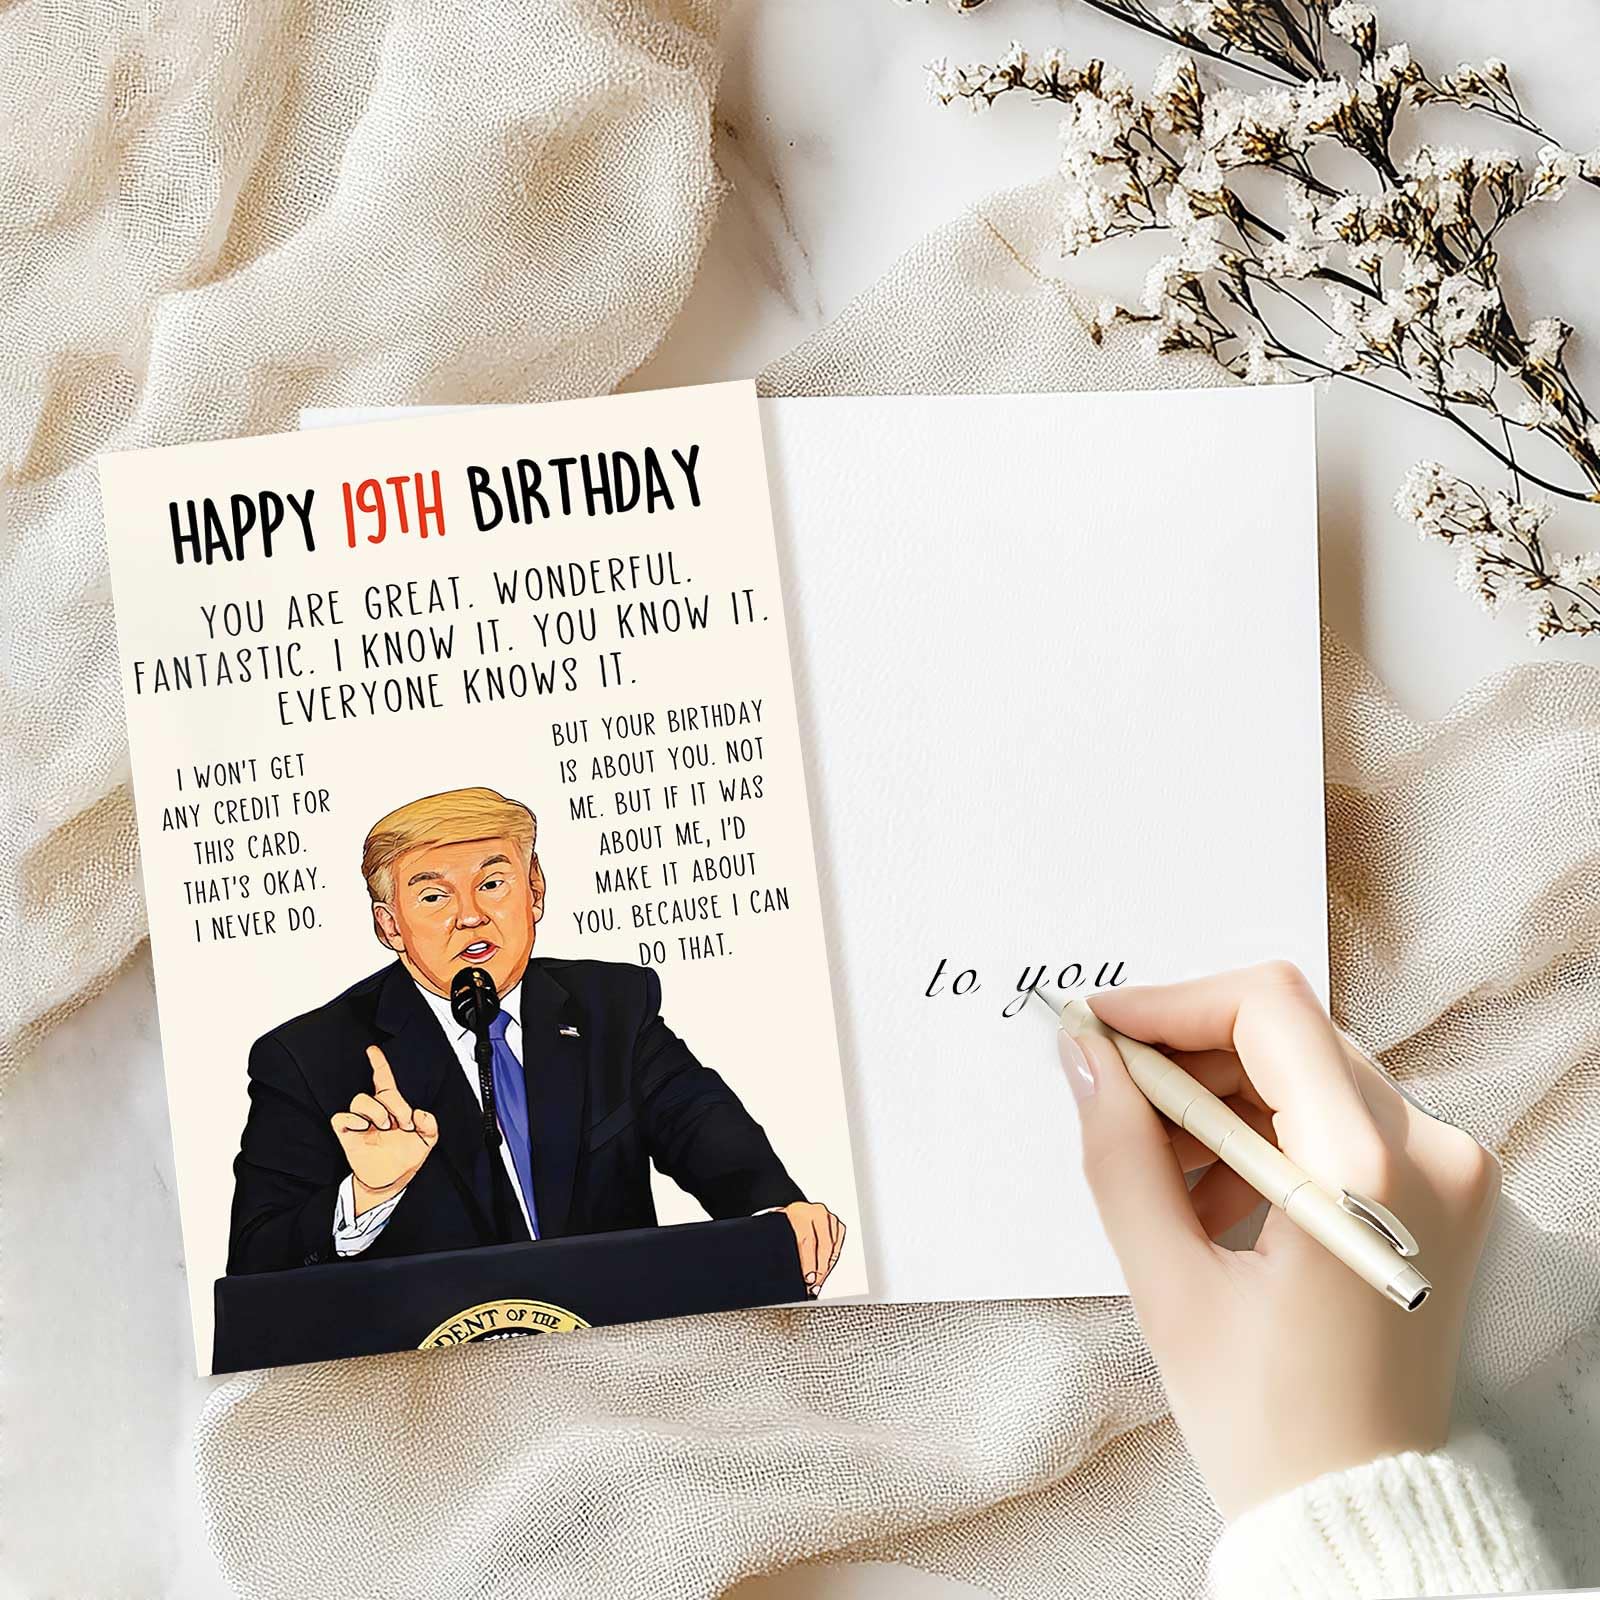 HAPPY 19TH BIRTHDAY
YOU ARE GREAT. WONDERFUL.
FANTASTIC. I KNOW IT. YOU KNOW IT.
EVERYONE KNOWS IT.
I WON'T GET
ANY CREDIT FOR
THIS CARD.
THAT'S OKAY.
I NEVER DO.
BUT YOUR BIRTHDAY
IS ABOUT YOU. NOT
ME. BUT IF IT WAS
ABOUT ME, I'D
MAKE IT ABOUT
YOU. BECAUSE I CAN
DO THAT.
to you
DENT OF THE